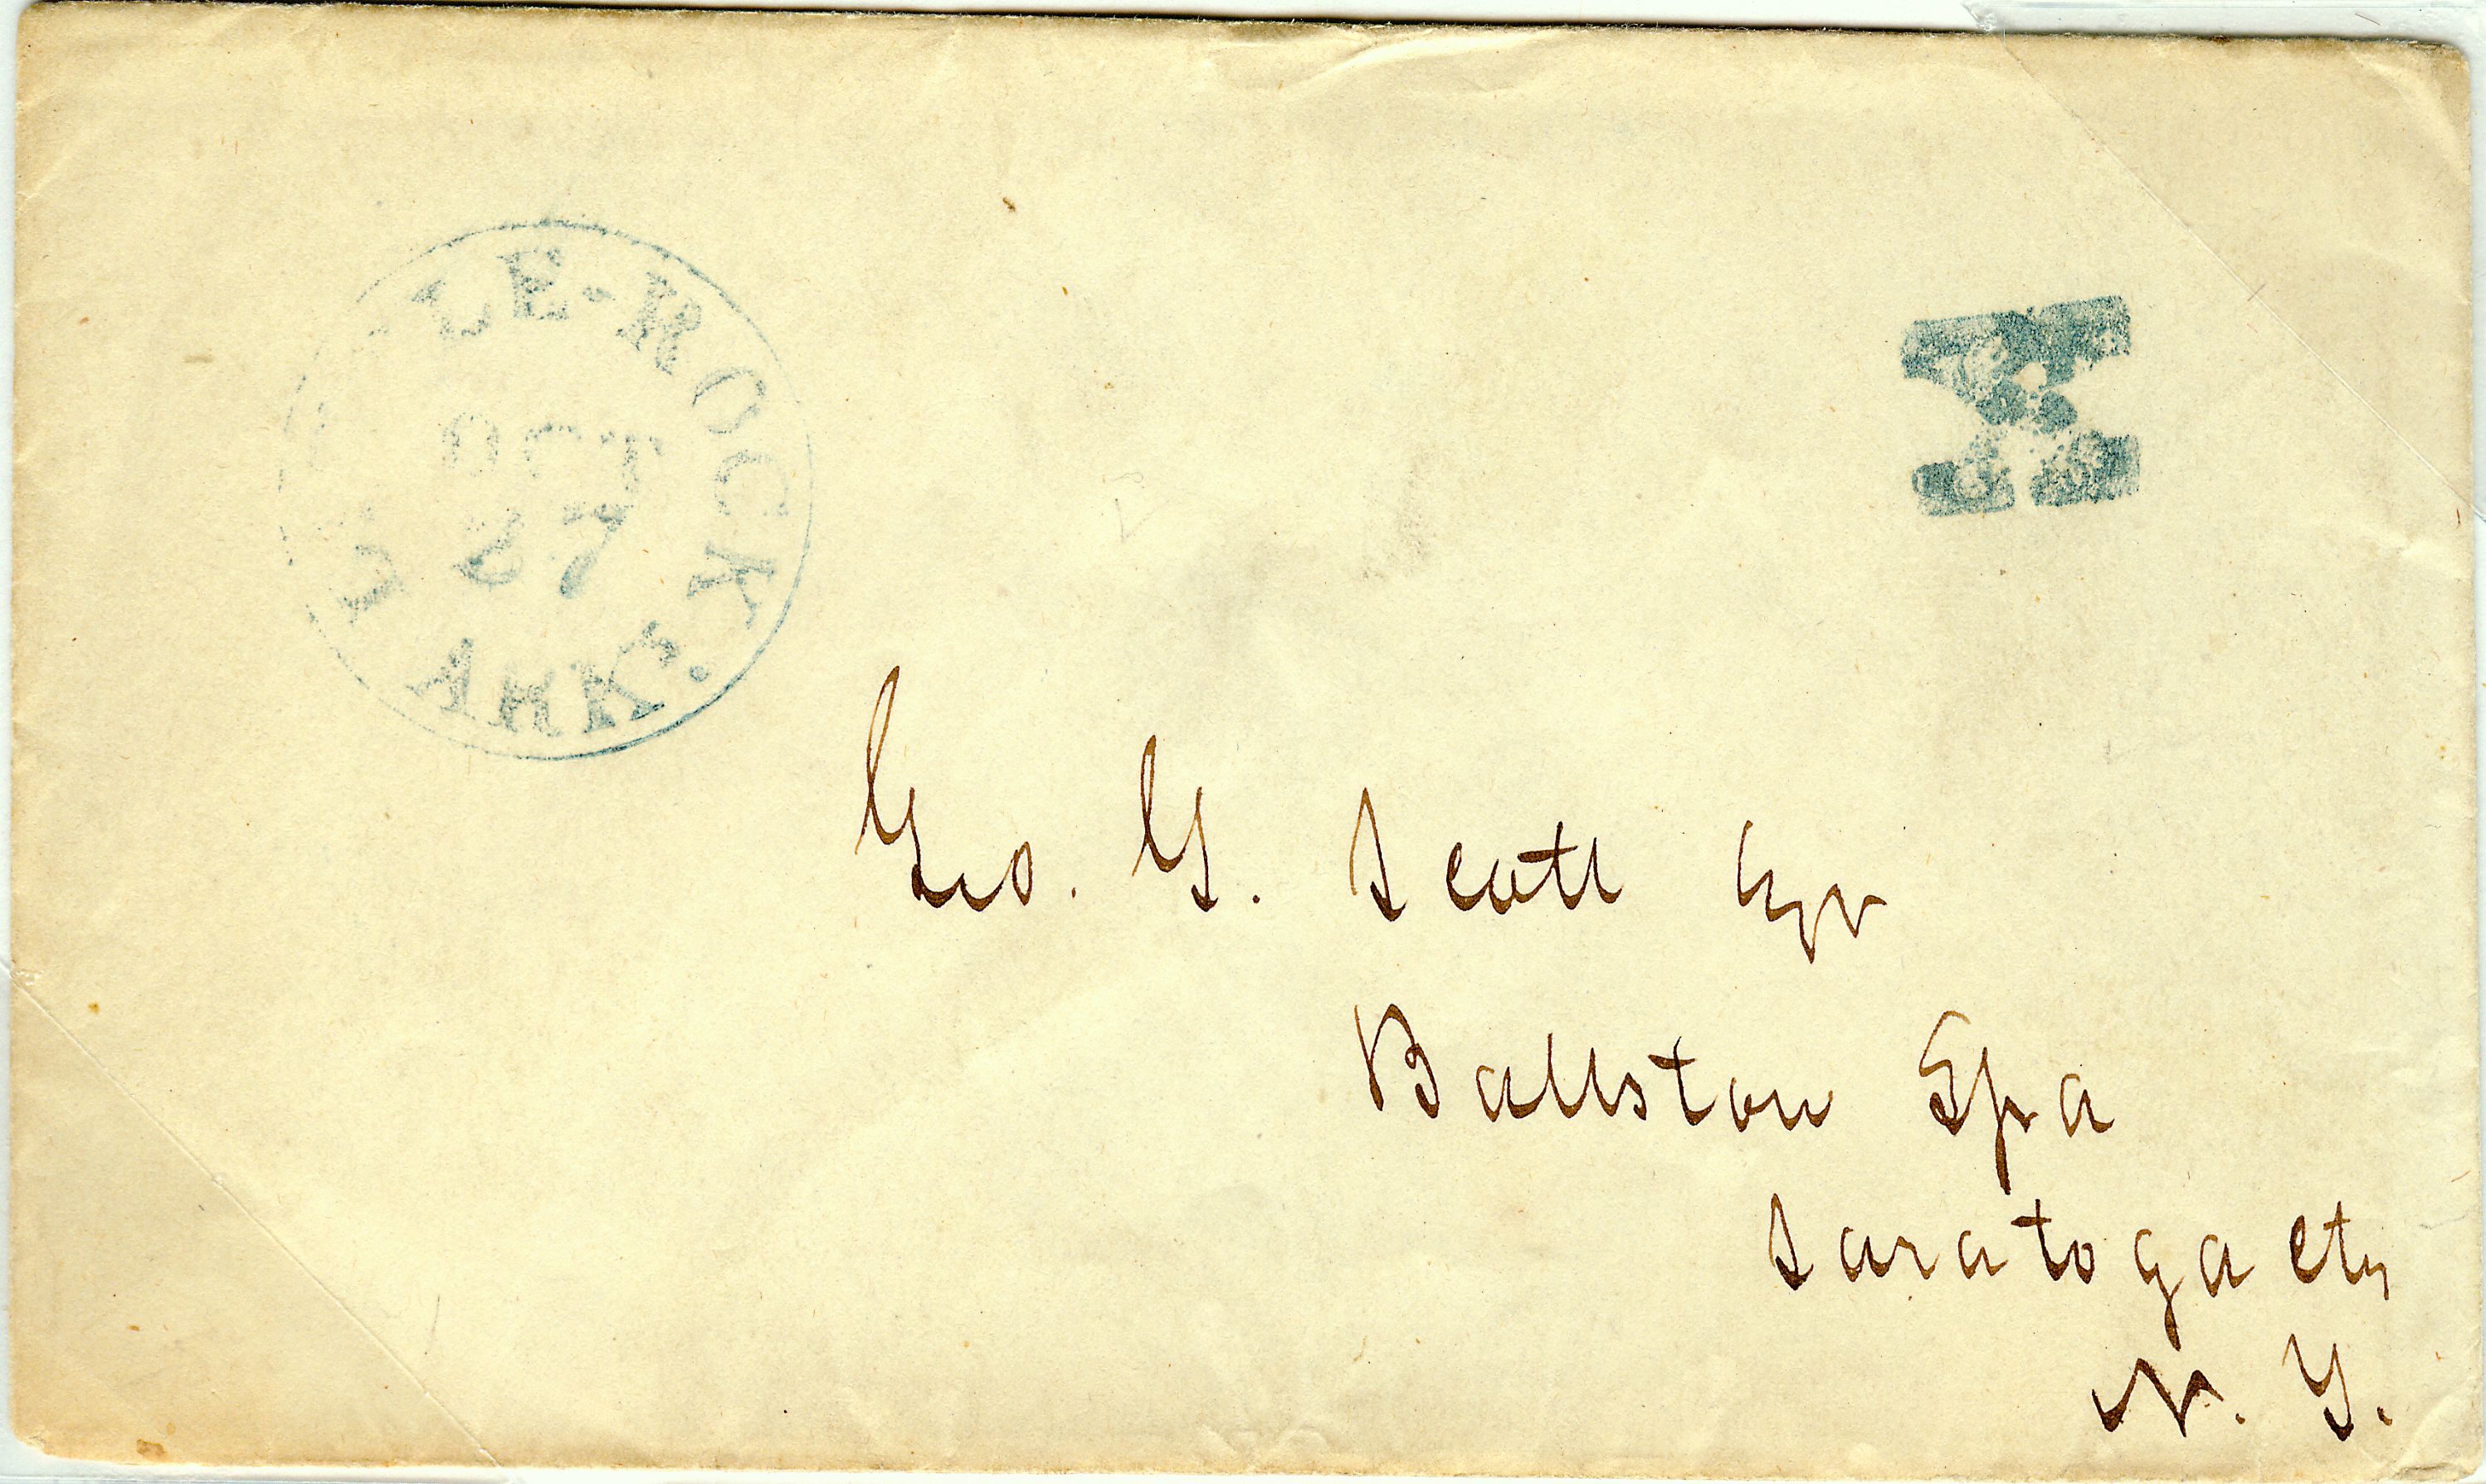 LE-ROCK
ARK.
OCT
27
X
Geo. G. Scott Esqr
Ballston Spa
Saratoga Cty
N. Y.